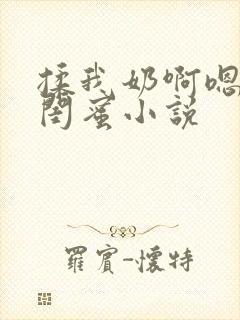 揉我奶啊嗯
闺蜜小说
羅賓-懷特